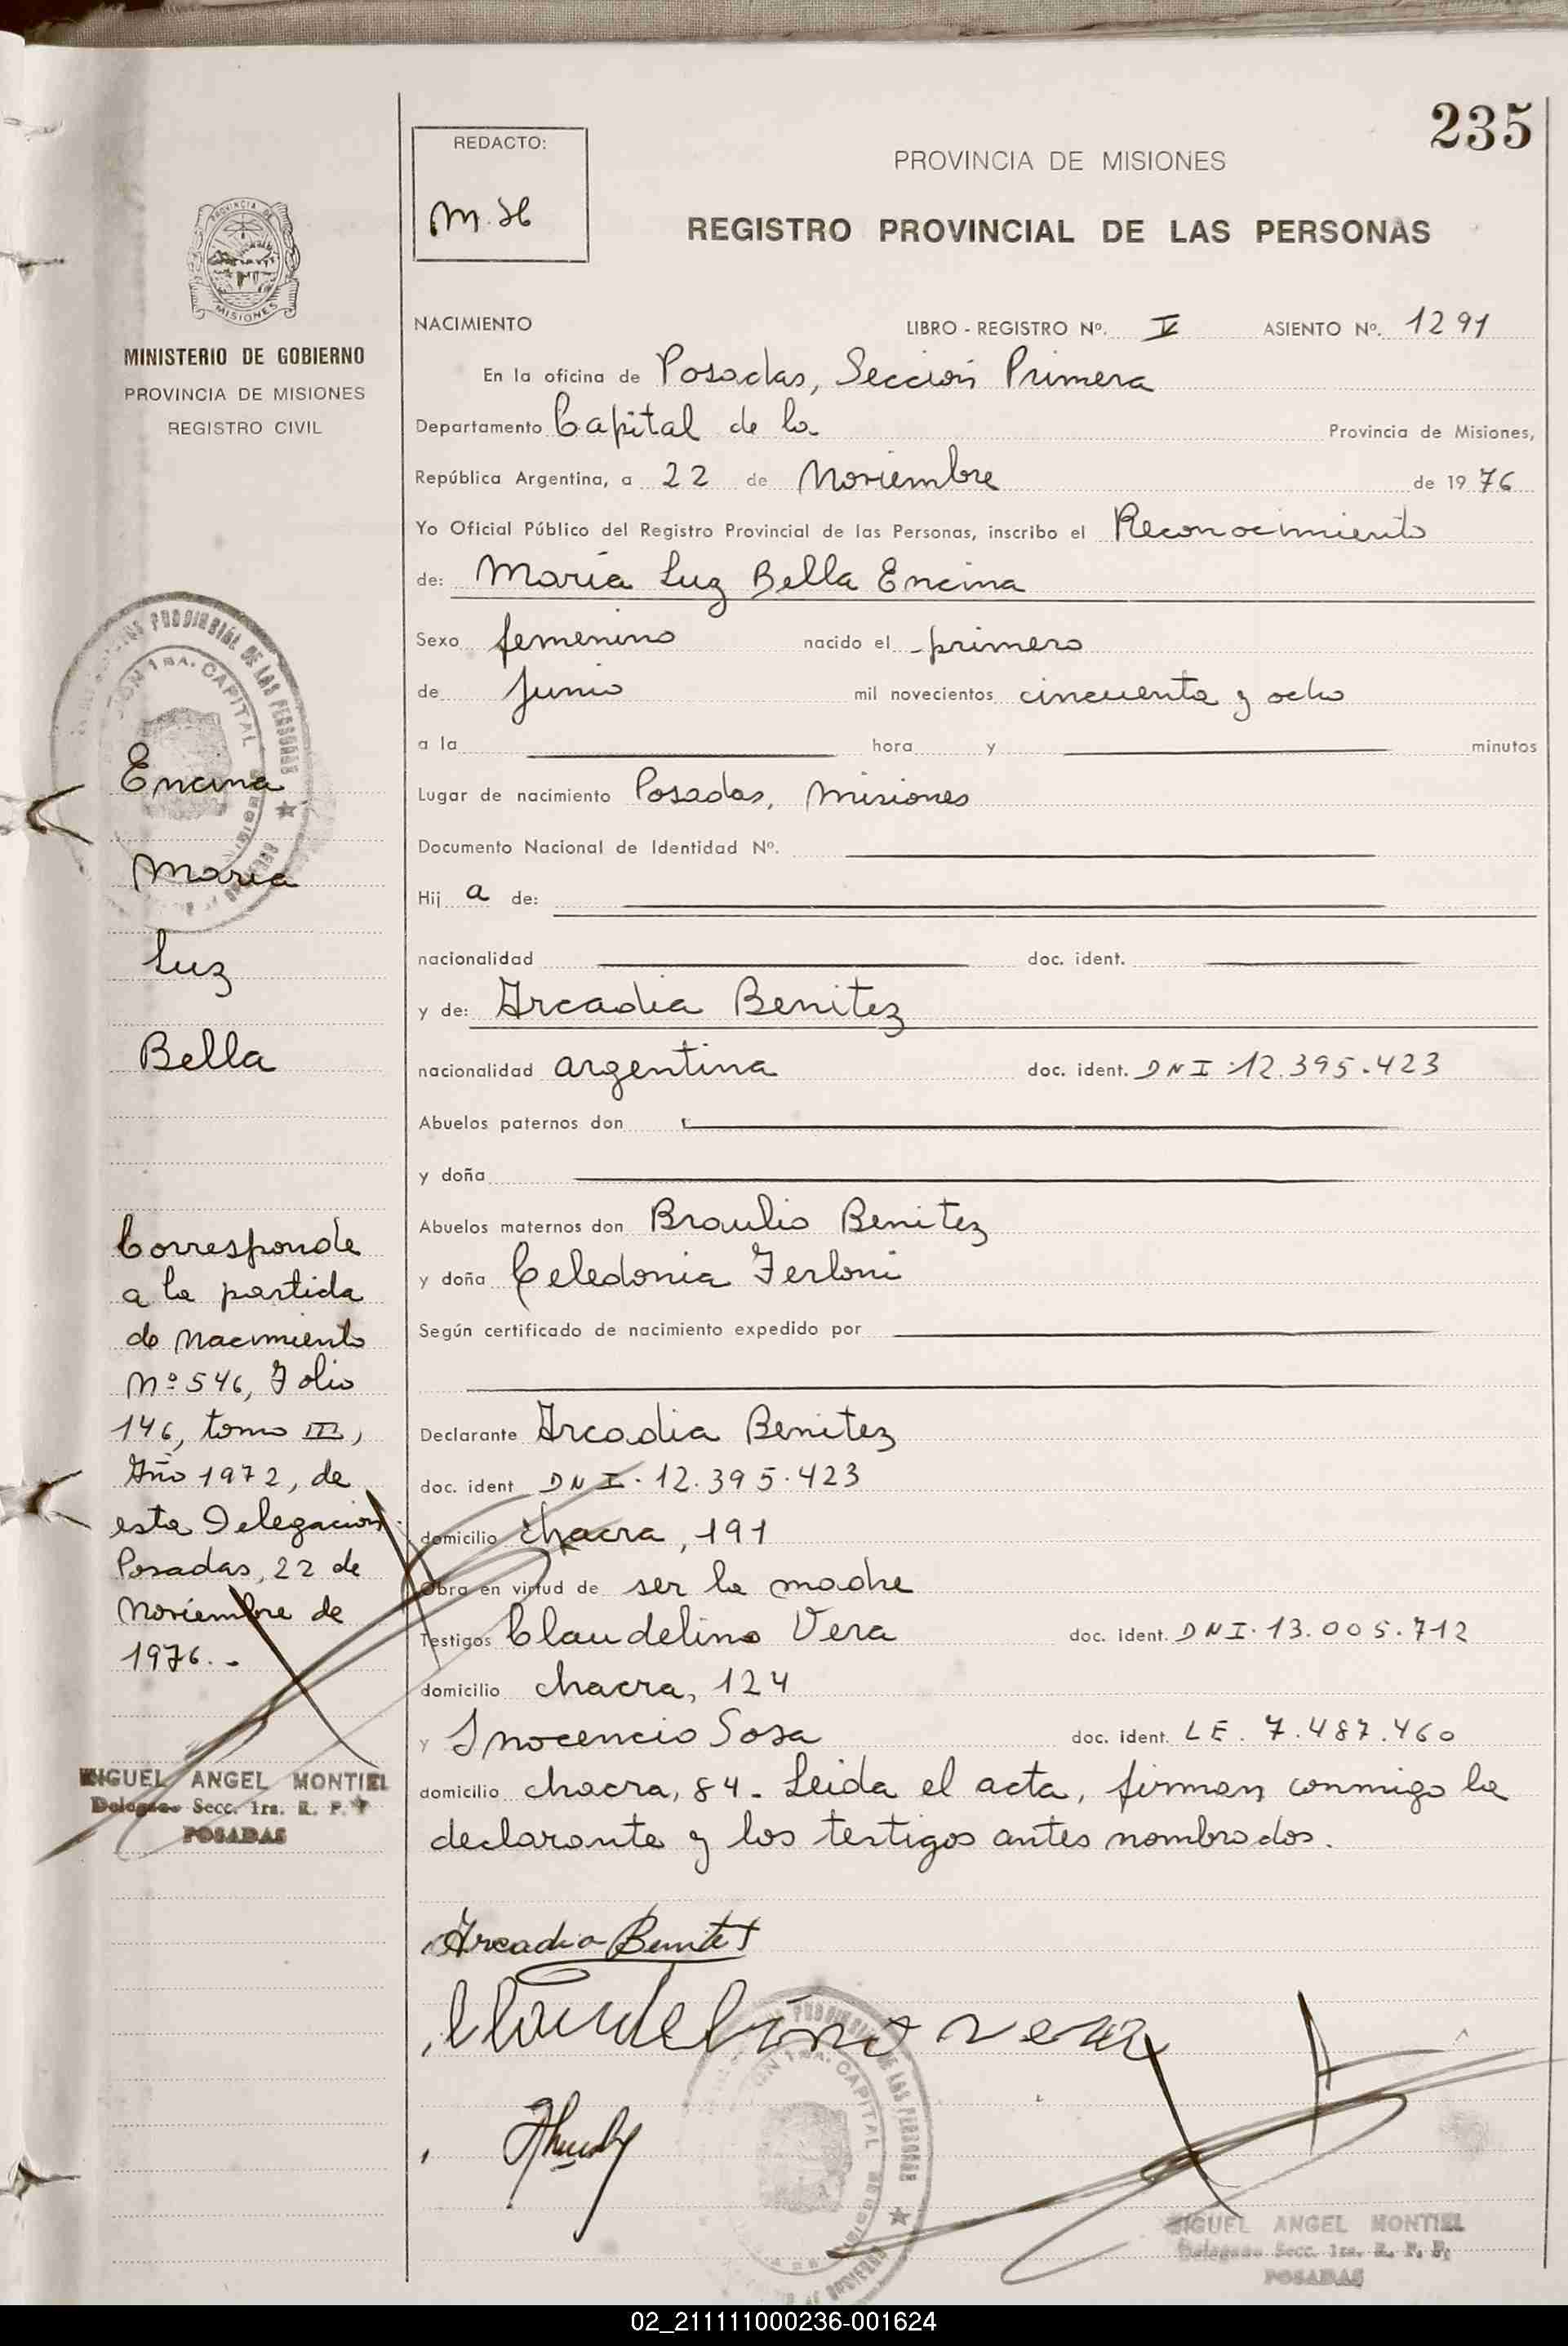 235
REDACTO:
M. H
PROVINCIA DE MISIONES
REGISTRO PROVINCIAL DE LAS PERSONAS
PROVINCIA DE
MISIONES
MINISTERIO DE GOBIERNO
PROVINCIA DE MISIONES
REGISTRO CIVIL
NACIMIENTO LIBRO - REGISTRO Nº. V ASIENTO Nº. 1291
En la oficina de Posadas, Sección Primera
Departamento Capital de la Provincia de Misiones,
República Argentina, a 22 de Noviembre de 1976
Yo Oficial Público del Registro Provincial de las Personas, inscribo el Reconocimiento
de: María Luz Bella Encina
Sexo femenino nacido el primero
de Junio mil novecientos cincuenta y ocho
a la hora y minutos
Lugar de nacimiento Posadas, Misiones
Documento Nacional de Identidad Nº.
Hij a de:
nacionalidad doc. ident.
y de: Arcadia Benitez
nacionalidad argentina doc. ident. DNI.12.395.423
Abuelos paternos don
y doña
Abuelos maternos don Braulio Benitez
y doña Celedonia Ferloni
Según certificado de nacimiento expedido por
Declarante Arcadia Benitez
doc. ident DNI.12.395.423
domicilio chacra, 191
Obra en virtud de ser la madre
Testigos Claudelino Vera doc. ident. DNI.13.005.712
domicilio chacra, 124
y Inocencio Sosa doc. ident. LE. 7.487.460
domicilio chacra, 84. Leida el acta, firman conmigo la
declarante y los testigos antes nombrados.
Encina
María
Luz
Bella
Corresponde
a la partida
de Nacimiento
Nº 546, Folio
146, tomo III,
Año 1972, de
esta Delegación
Posadas, 22 de
Noviembre de
1976.-
MIGUEL ANGEL MONTIEL
Delegado Secc. 1ra. R. P. P
POSADAS
Arcadia Benitez
Claudelino vera
PROVINCIAL DE LAS PERSONAS
1RA. CAPITAL
MIGUEL ANGEL MONTIEL
Delegado Secc. 1ra. R. P. P.
POSADAS
02_211111000236-001624